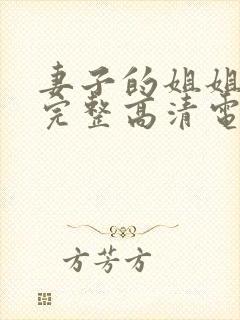 妻子的姐姐
完整高清电
方芳方